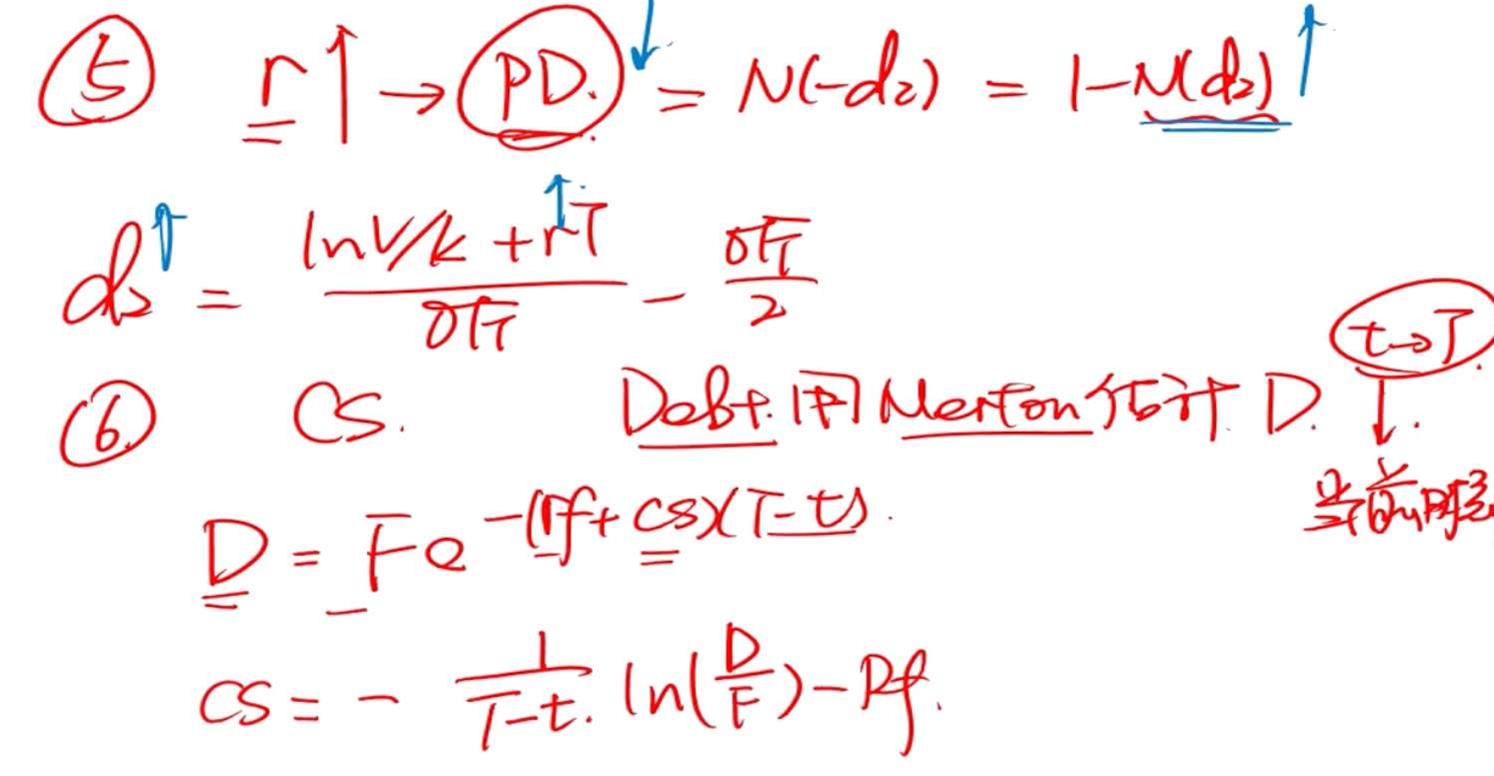 ⑤ r↑ → PD.↓ = N(-d₂) = 1-N(d₂)↑
d₂↑ = (lnV/K + r↑T)/(σ√T) - (σ√T)/2
t→T
⑥ CS. Debt. 用 Merton 估计 D. ↓.
当前时
D = Fe^{-(Rf+CS)(T-t)}.
CS = - 1/(T-t). ln(D/F) - Rf.